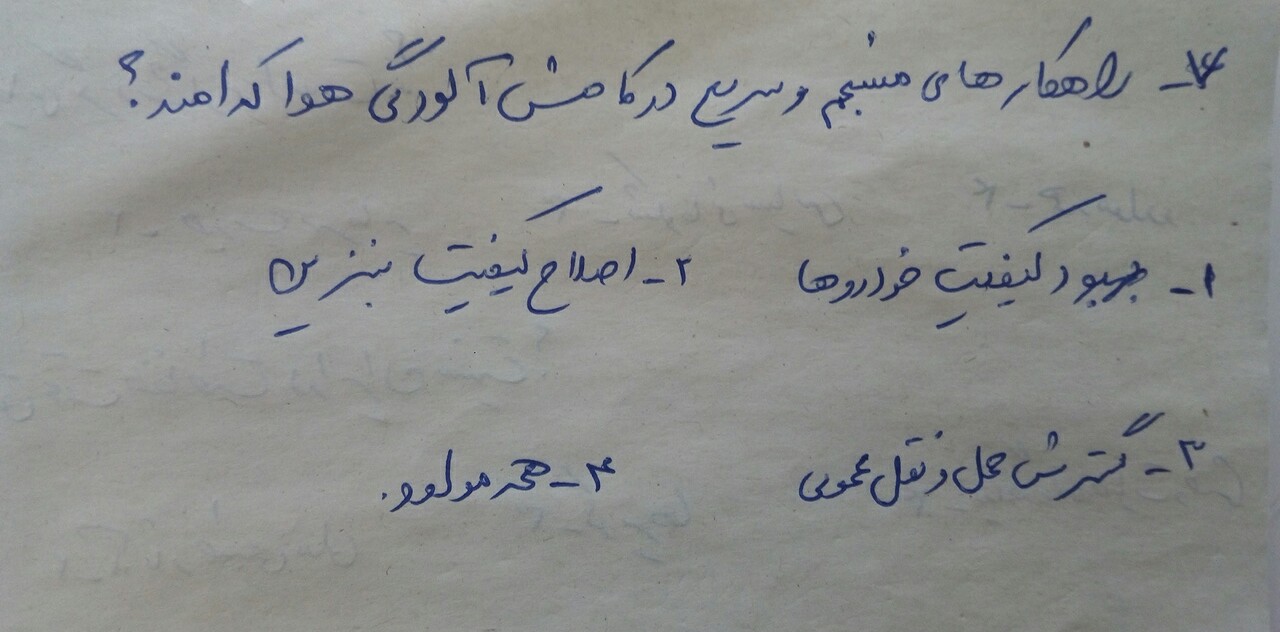 ۷- راهکارهای منسجم و سریع در کاهش آلودگی هوا کدامند؟
۱- بهبود کیفیتِ خودروها ۲- اصلاح کیفیتِ بنزین
۳- گسترش حمل و نقل عمومی ۴- همه موارد.